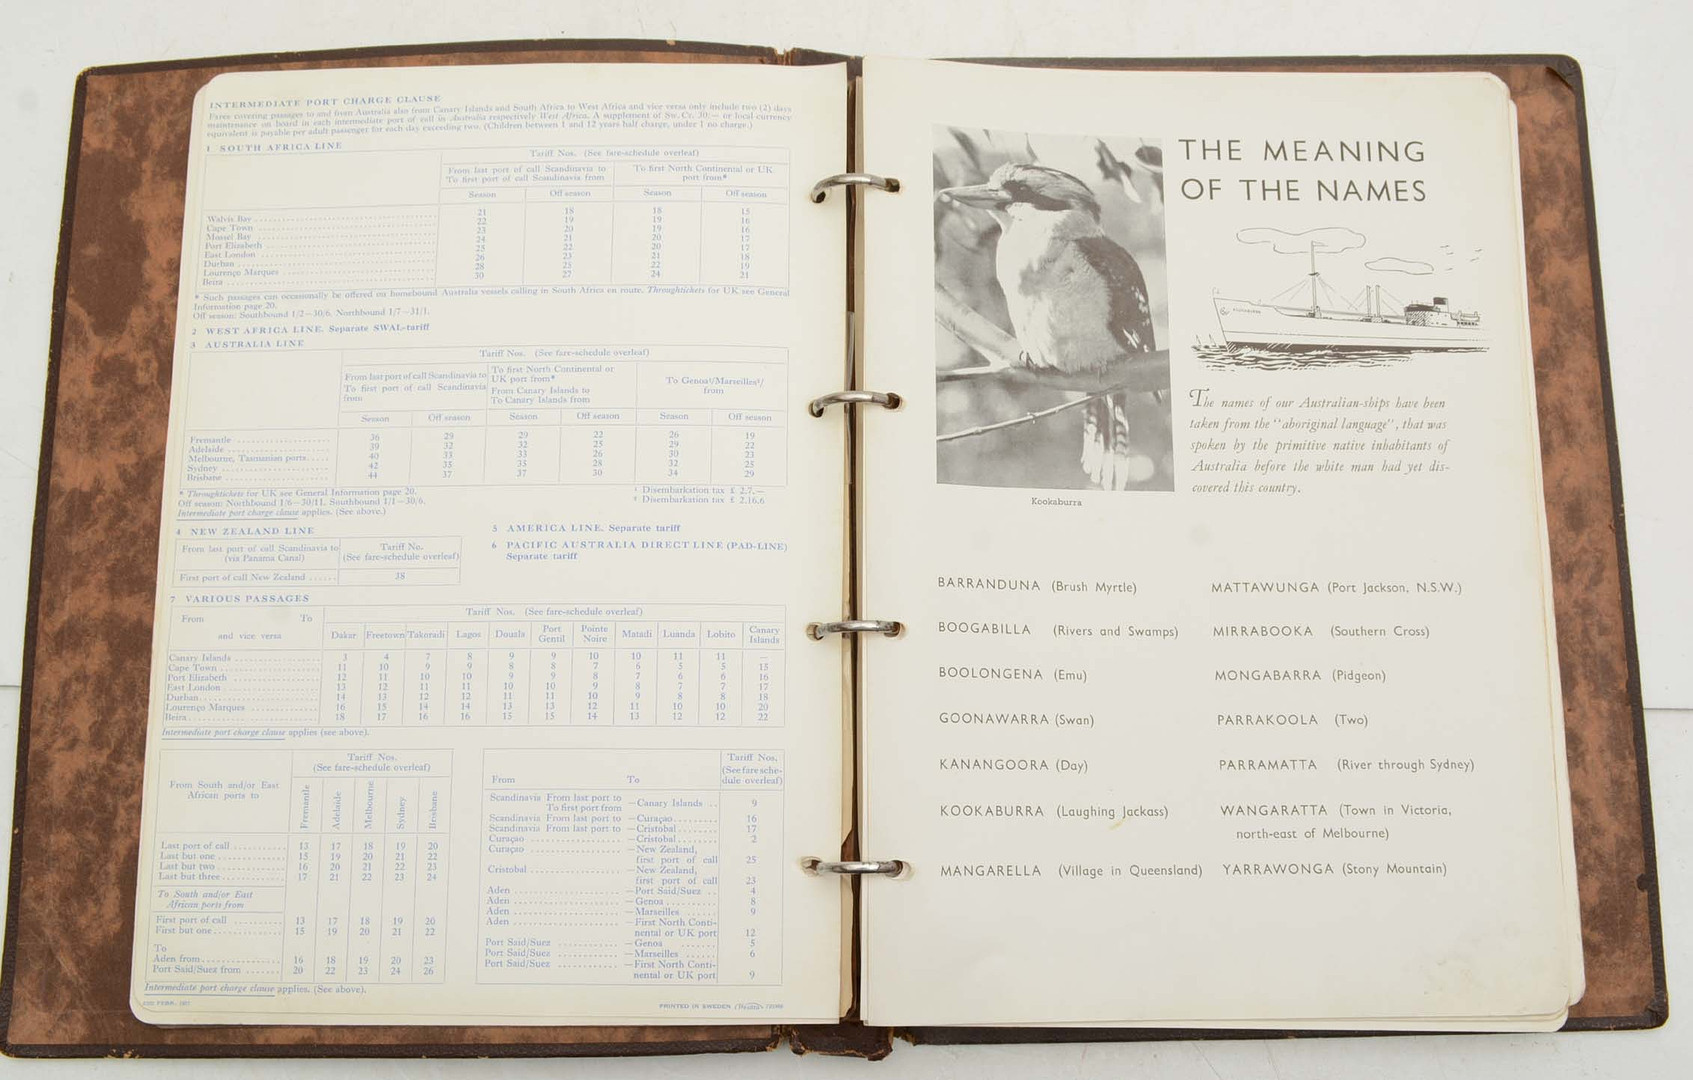 INTERMEDIATE PORT CHARGE CLAUSE
Fares covering passages to and from Australia also from Canary Islands and South Africa to West Africa and vice versa only include two (2) days
maintenance on board in each intermediate port of call in Australia respectively West Africa. A supplement of Sw. Cr. 30:— or local currency
equivalent is payable per adult passenger for each day exceeding two. (Children between 1 and 12 years half charge, under 1 no charge.)
1 SOUTH AFRICA LINE
Tariff Nos. (See fare-schedule overleaf)
From last port of call Scandinavia to
To first port of call Scandinavia from
To first North Continental or UK
port from*
Season Off season Season Off season
Walvis Bay 21 18 18 15
Cape Town 22 19 19 16
Mossel Bay 23 20 19 16
Port Elizabeth 24 21 20 17
East London 25 22 20 17
Durban 26 23 21 18
Lourenço Marques 28 25 22 19
Beira 30 27 24 21
* Such passages can occasionally be offered on homebound Australia vessels calling in South Africa en route. Throughtickets for UK see General
Information page 20.
Off season: Southbound 1/2—30/6. Northbound 1/7—31/1.
2 WEST AFRICA LINE. Separate SWAL-tariff
3 AUSTRALIA LINE
Tariff Nos. (See fare-schedule overleaf)
From last port of call Scandinavia to
To first port of call Scandinavia
from
To first North Continental or
UK port from*
From Canary Islands to
To Canary Islands from
To Genoa¹/Marseilles²/
from
Season Off season Season Off season Season Off season
Fremantle 36 29 29 22 26 19
Adelaide 39 32 32 25 29 22
Melbourne, Tasmanian ports 40 33 33 26 30 23
Sydney 42 35 35 28 32 25
Brisbane 44 37 37 30 34 29
* Throughtickets for UK see General Information page 20.
Off season: Northbound 1/6—30/11. Southbound 1/1—30/6.
Intermediate port charge clause applies. (See above.)
¹ Disembarkation tax £ 2.7.—
² Disembarkation tax £ 2.16.6
4 NEW ZEALAND LINE
From last port of call Scandinavia to
(via Panama Canal)
Tariff No.
(See fare-schedule overleaf)
First port of call New Zealand 38
5 AMERICA LINE. Separate tariff
6 PACIFIC AUSTRALIA DIRECT LINE (PAD-LINE)
Separate tariff
7 VARIOUS PASSAGES
Tariff Nos. (See fare-schedule overleaf)
From To
and vice versa
Dakar Freetown Takoradi Lagos Douala Port Gentil Pointe Noire Matadi Luanda Lobito Canary Islands
Canary Islands 3 4 7 8 9 9 10 10 11 11 —
Cape Town 11 10 9 9 8 8 7 6 5 5 15
Port Elizabeth 12 11 10 10 9 9 8 7 6 6 16
East London 13 12 11 11 10 10 9 8 7 7 17
Durban 14 13 12 12 11 11 10 9 8 8 18
Lourenço Marques 16 15 14 14 13 13 12 11 10 10 20
Beira 18 17 16 16 15 15 14 13 12 12 22
Intermediate port charge clause applies (see above).
From South and/or East
African ports to
Tariff Nos.
(See fare-schedule overleaf)
Fremantle Adelaide Melbourne Sydney Brisbane
Last port of call 13 17 18 19 20
Last but one 15 19 20 21 22
Last but two 16 20 21 22 23
Last but three 17 21 22 23 24
To South and/or East
African ports from
First port of call 13 17 18 19 20
First but one 15 19 20 21 22
To
Aden from 16 18 19 20 23
Port Said/Suez from 20 22 23 24 26
Intermediate port charge clause applies. (See above).
From To
Tariff Nos.
(See fare sche-
dule overleaf)
Scandinavia From last port to
To first port from —Canary Islands 9
Scandinavia From last port to —Curaçao 16
Scandinavia From last port to —Cristobal 17
Curaçao —Cristobal 2
Curaçao —New Zealand,
first port of call 25
Cristobal —New Zealand,
first port of call 23
Aden —Port Said/Suez 4
Aden —Genoa 8
Aden —Marseilles 9
Aden —First North Conti-
nental or UK port 12
Port Said/Suez —Genoa 5
Port Said/Suez —Marseilles 6
Port Said/Suez —First North Conti-
nental or UK port 9
PRINTED IN SWEDEN
THE MEANING
OF THE NAMES
The names of our Australian-ships have been
taken from the "aboriginal language", that was
spoken by the primitive native inhabitants of
Australia before the white man had yet dis-
covered this country.
Kookaburra
BARRANDUNA (Brush Myrtle)
BOOGABILLA (Rivers and Swamps)
BOOLONGENA (Emu)
GOONAWARRA (Swan)
KANANGOORA (Day)
KOOKABURRA (Laughing Jackass)
MANGARELLA (Village in Queensland)
MATTAWUNGA (Port Jackson, N.S.W.)
MIRRABOOKA (Southern Cross)
MONGABARRA (Pidgeon)
PARRAKOOLA (Two)
PARRAMATTA (River through Sydney)
WANGARATTA (Town in Victoria,
north-east of Melbourne)
YARRAWONGA (Stony Mountain)